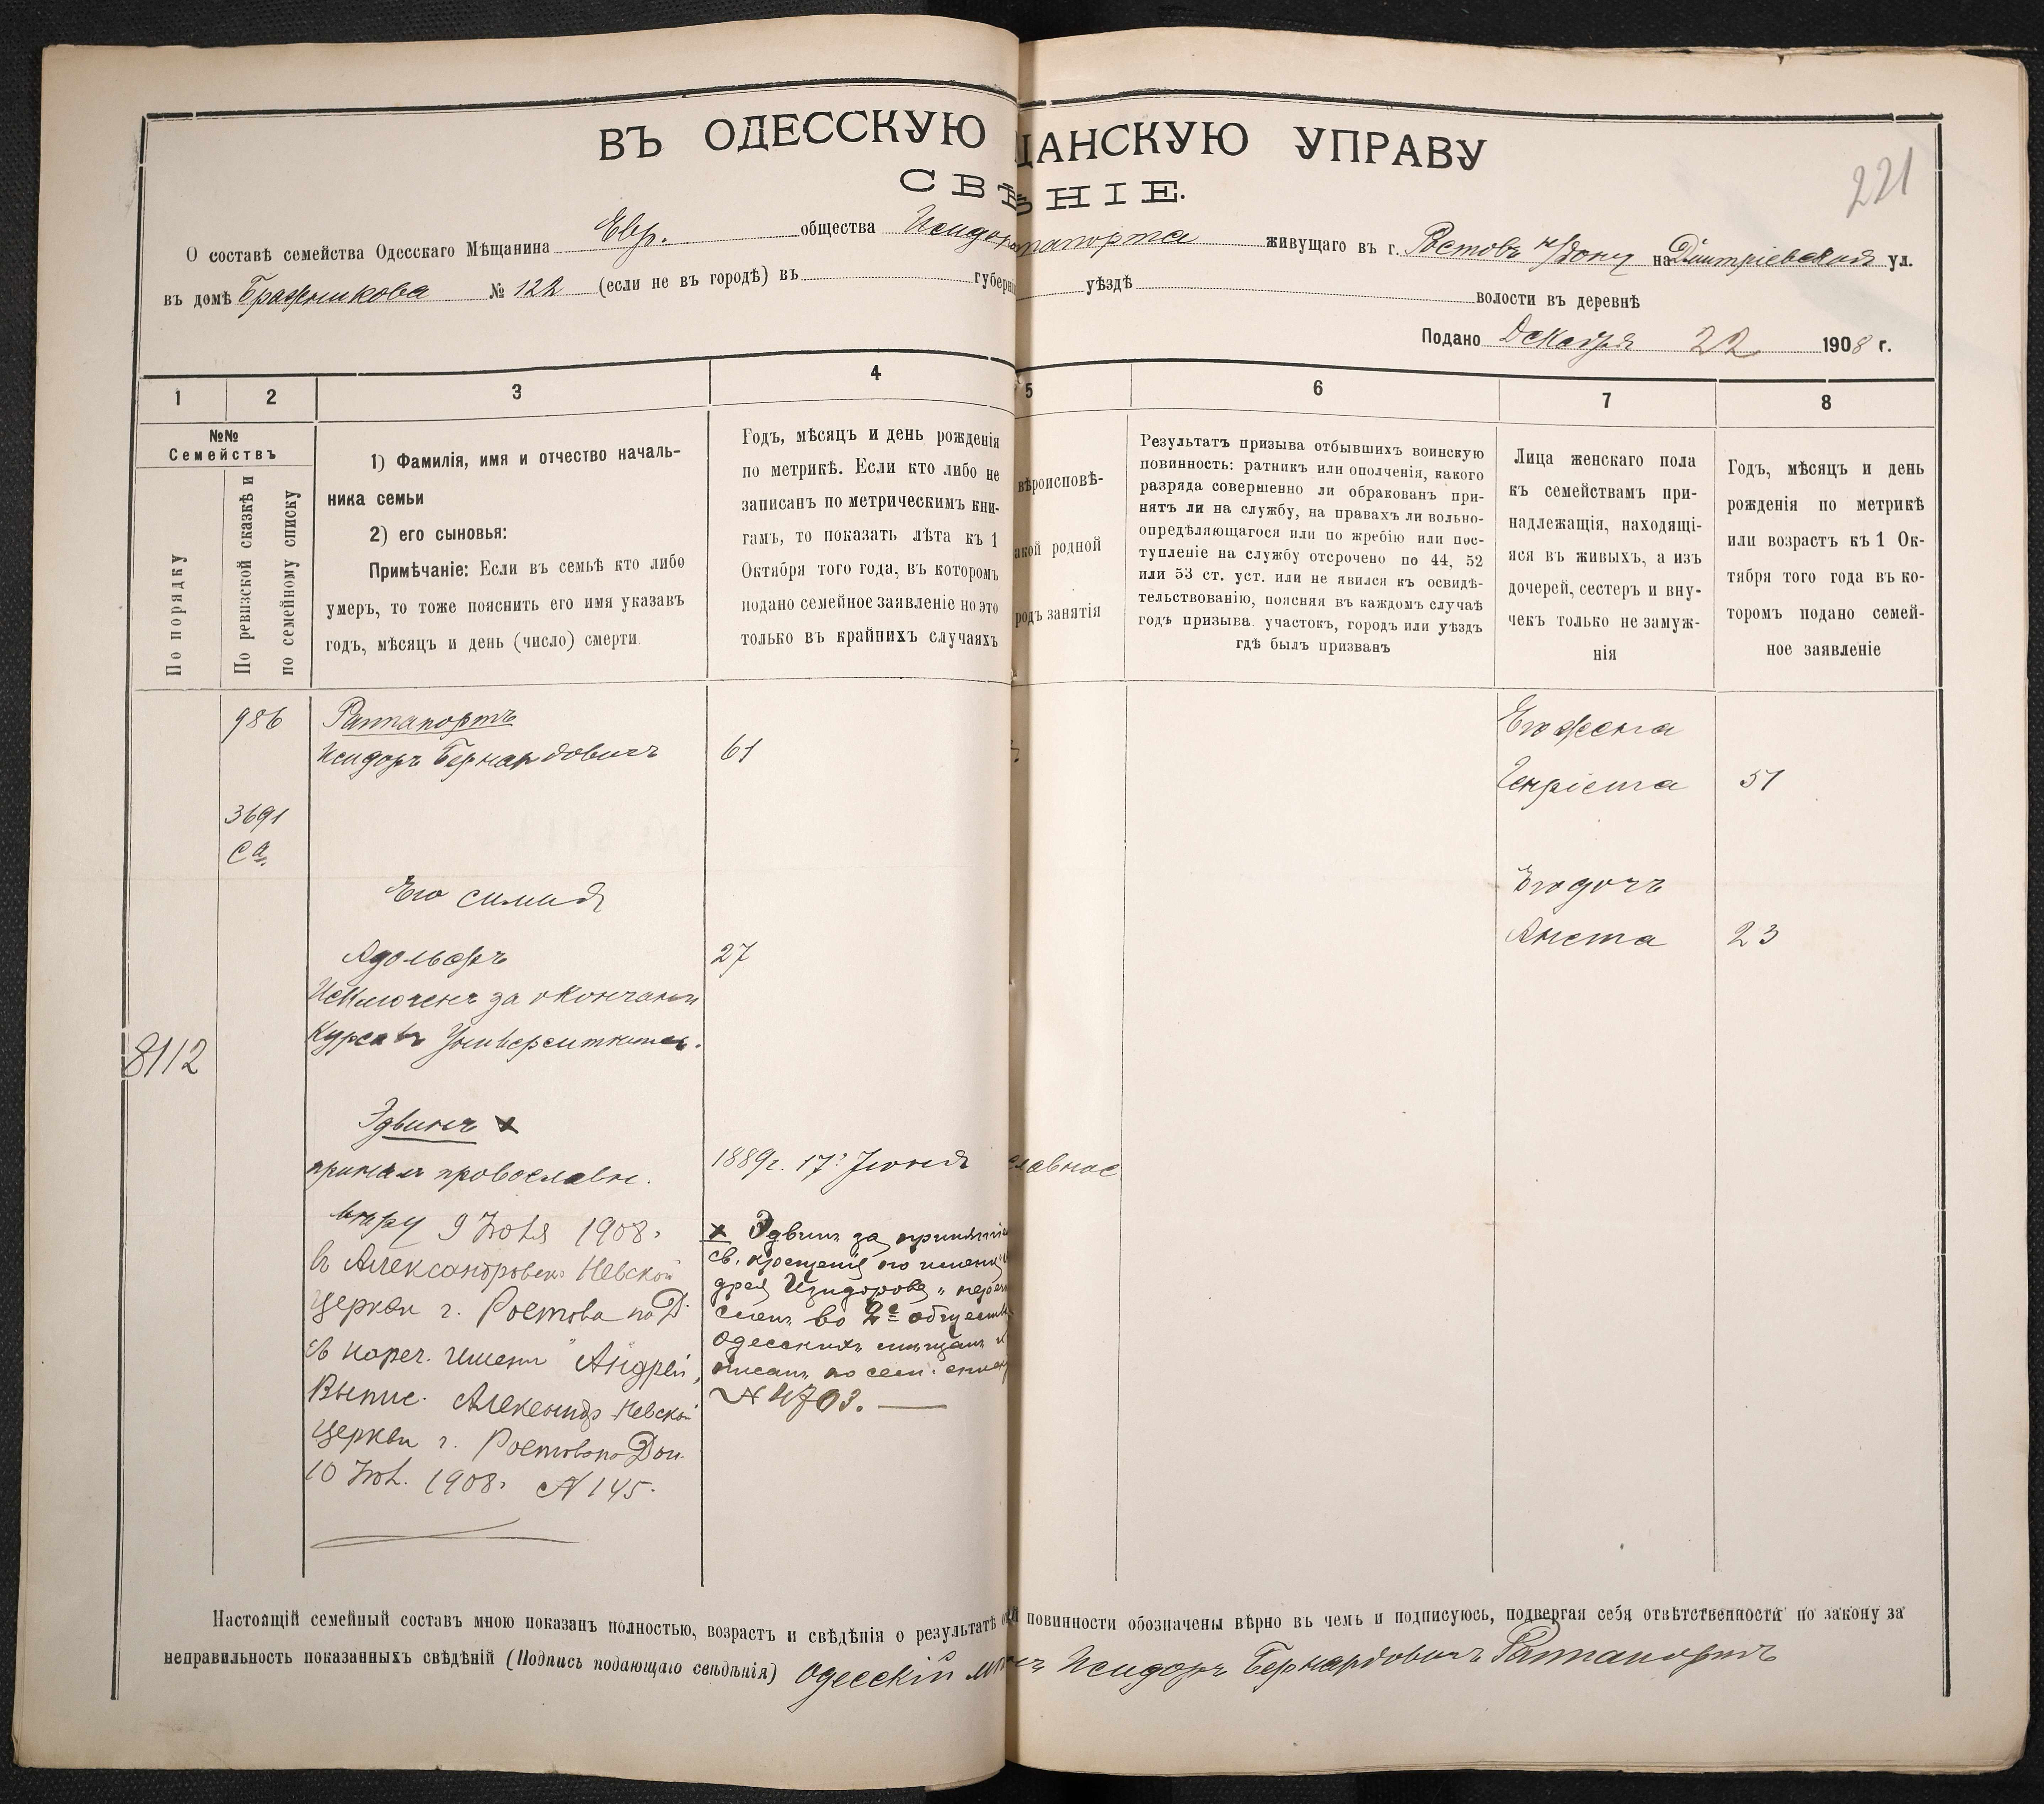 ВЪ ОДЕССКУЮ ЩАНСКУЮ УПРАВУ
221
СВѢ НІЕ.
О составѣ семейства Одесскаго Мѣщанина Евр. общества Исидора апорта живущаго въ г. Ростовѣ н/Дону на Дмитріевской ул.
въ домѣ Бражникова № 122 (если не въ городѣ) въ губерні уѣздѣ волости въ деревнѣ
Подано Декабря 22 1908 г.
1 2 3 4 5 6 7 8
№№ Семействъ
По порядку
По ревизской сказкѣ и по семейному списку
1) Фамилія, имя и отчество началь-
ника семьи
2) его сыновья:
Примѣчаніе: Если въ семьѣ кто либо
умеръ, то тоже пояснить его имя указавъ
годъ, мѣсяцъ и день (число) смерти.
Годъ, мѣсяцъ и день рожденія
по метрикѣ. Если кто либо не
записанъ по метрическимъ кни-
гамъ, то показать лѣта къ 1
Октября того года, въ которомъ
подано семейное заявленіе но это
только въ крайнихъ случаяхъ
вѣроисповѣ-
акой родной
родъ занятія
Результатъ призыва отбывшихъ воинскую
повинность: ратникъ или ополченія, какого
разряда совершенно ли обракованъ при-
нятъ ли на службу, на правахъ ли вольно-
опредѣляющагося или по жребію или пос-
тупленіе на службу отсрочено по 44, 52
или 53 ст. уст. или не явился къ освидѣ-
тельствованію, поясняя въ каждомъ случаѣ
годъ призыва участокъ, городъ или уѣздъ
гдѣ былъ призванъ
Лица женскаго пола
къ семействамъ при-
надлежащія, находящі-
яся въ живыхъ, а изъ
дочерей, сестеръ и вну-
чекъ только не замуж-
нія
Годъ, мѣсяцъ и день
рожденія по метрикѣ
или возрастъ къ 1 Ок-
тября того года въ ко-
торомъ подано семей-
ное заявленіе
986 Раппапортъ Его жена
Исидоръ Бернардовичъ 61
Генріета 51
3691
Са.
Его симия Его дочъ
Адольфъ 27 Анета 23
Исключенъ за окончани
Курса въ Университета.
8112
Эдвинъ х
принялъ провославн. 1889г. 17го Іюня славное
вѣру 9 Іюля 1908г.
въ Александровско Невской
церкви г. Ростова на Д.
съ нареч. имени "Андрей"
Выпис. Александро Невской
церкви г. Ростова на Дон.
10 Іюл. 1908г. № 145.
х Эдвинъ за приняті
св. крещенія по имени
дрей Изидоровъ" пере
слен во 2е обществ
одесскихъ мѣщанъ и
писанъ по сем. списк
№ 4703.
Настоящій семейный составъ мною показанъ полностью, возрастъ и свѣдѣнія о результатѣ ой повинности обозначены вѣрно въ чемъ и подписуюсь, подвергая себя отвѣтственности по закону за
неправильность показанныхъ свѣдѣній (Подпись подающаго свѣдѣнія) Одесскій мѣ нъ Исидоръ Бернардовичъ Раппапортъ